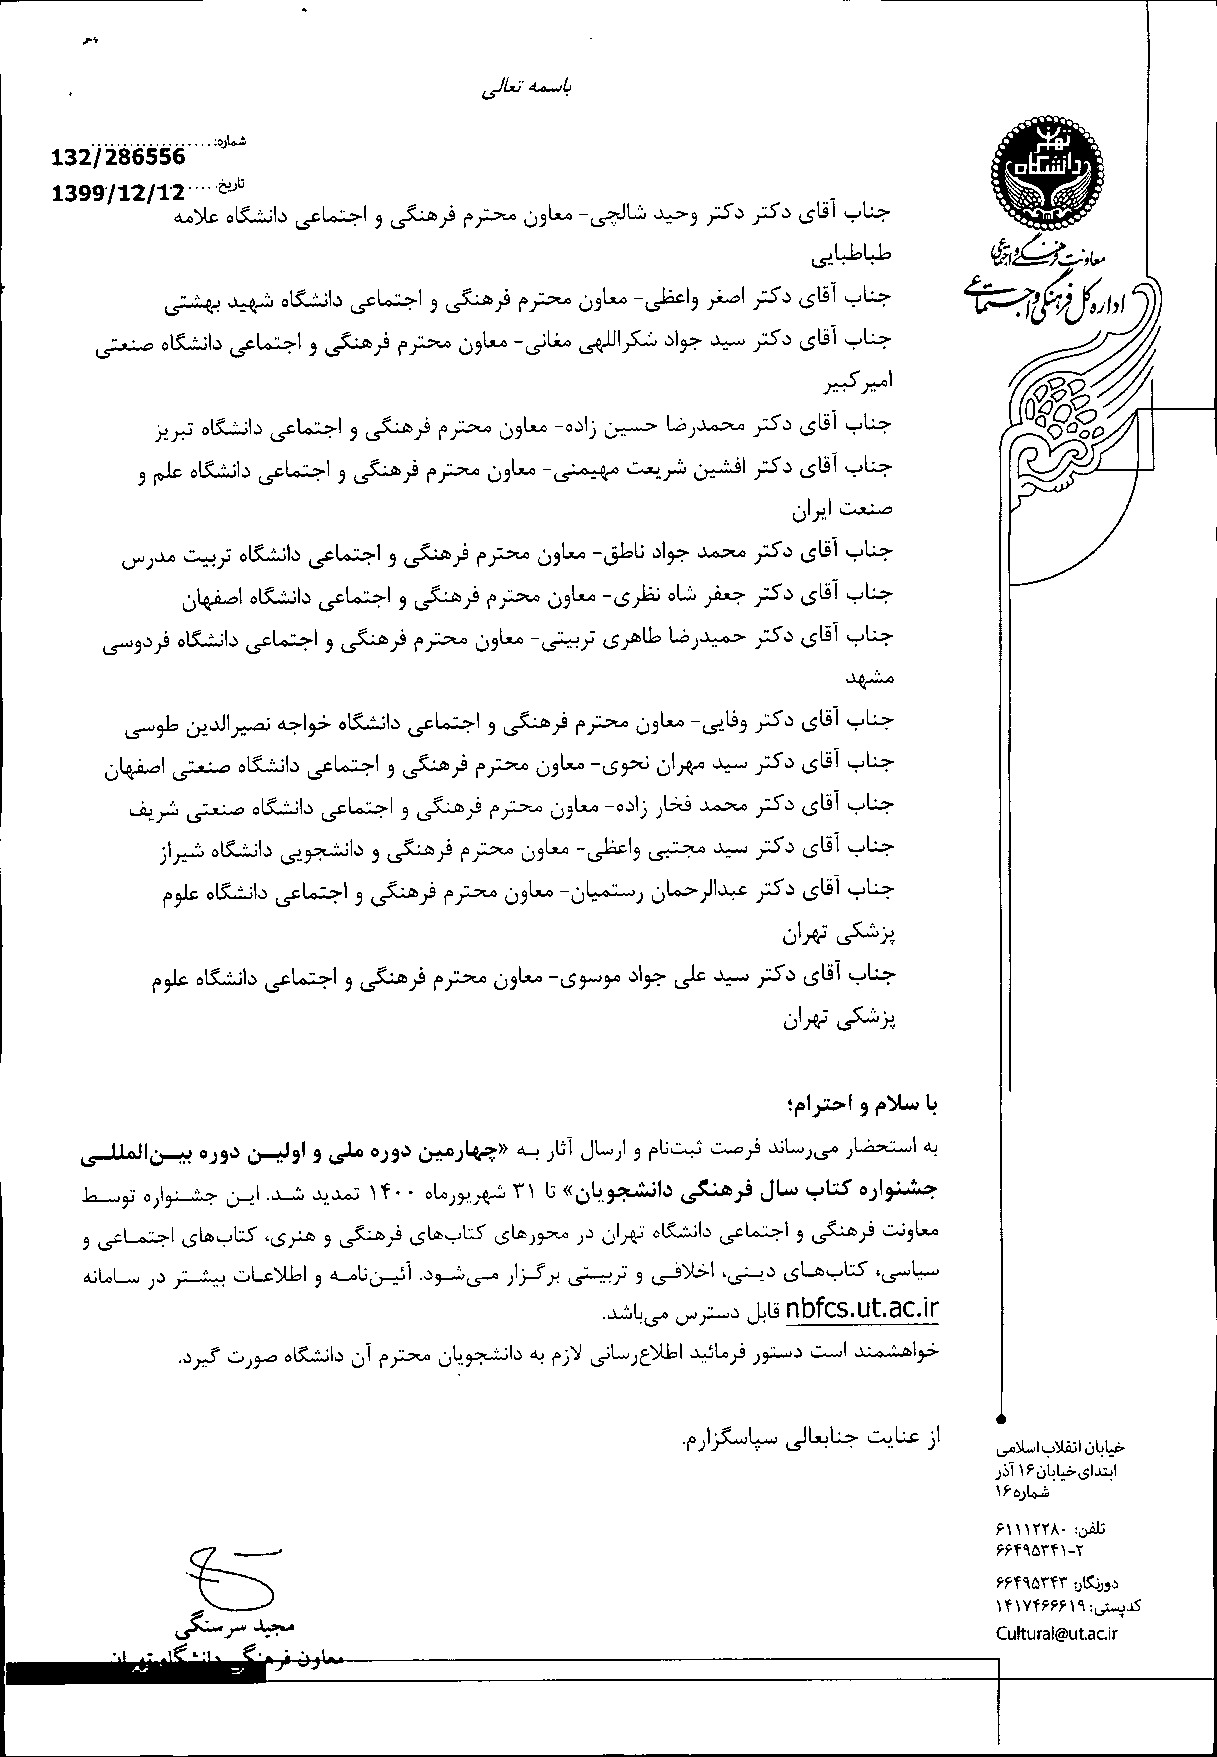 باسمه تعالی
شماره: 132/286556
تاریخ 1399/12/12
دانشگاه تهران
معاونت فرهنگی و اجتماعی
اداره کل فرهنگی و اجتماعی
جناب آقای دکتر دکتر وحید شالچی- معاون محترم فرهنگی و اجتماعی دانشگاه علامه
طباطبایی
جناب آقای دکتر اصغر واعظی- معاون محترم فرهنگی و اجتماعی دانشگاه شهید بهشتی
جناب آقای دکتر سید جواد شکراللهی مغانی- معاون محترم فرهنگی و اجتماعی دانشگاه صنعتی
امیرکبیر
جناب آقای دکتر محمدرضا حسین زاده- معاون محترم فرهنگی و اجتماعی دانشگاه تبریز
جناب آقای دکتر افشین شریعت مهیمنی- معاون محترم فرهنگی و اجتماعی دانشگاه علم و
صنعت ایران
جناب آقای دکتر محمد جواد ناطق- معاون محترم فرهنگی و اجتماعی دانشگاه تربیت مدرس
جناب آقای دکتر جعفر شاه نظری- معاون محترم فرهنگی و اجتماعی دانشگاه اصفهان
جناب آقای دکتر حمیدرضا طاهری تربیتی- معاون محترم فرهنگی و اجتماعی دانشگاه فردوسی
مشهد
جناب آقای دکتر وفایی- معاون محترم فرهنگی و اجتماعی دانشگاه خواجه نصیرالدین طوسی
جناب آقای دکتر سید مهران نحوی- معاون محترم فرهنگی و اجتماعی دانشگاه صنعتی اصفهان
جناب آقای دکتر محمد فخار زاده- معاون محترم فرهنگی و اجتماعی دانشگاه صنعتی شریف
جناب آقای دکتر سید مجتبی واعظی- معاون محترم فرهنگی و دانشجویی دانشگاه شیراز
جناب آقای دکتر عبدالرحمان رستمیان- معاون محترم فرهنگی و اجتماعی دانشگاه علوم
پزشکی تهران
جناب آقای دکتر سید علی جواد موسوی- معاون محترم فرهنگی و اجتماعی دانشگاه علوم
پزشکی تهران
با سلام و احترام؛
به استحضار می‌رساند فرصت ثبت‌نام و ارسال آثار به «چهارمین دوره ملی و اولین دوره بین‌المللی
جشنواره کتاب سال فرهنگی دانشجویان» تا ۳۱ شهریورماه ۱۴۰۰ تمدید شد. این جشنواره توسط
معاونت فرهنگی و اجتماعی دانشگاه تهران در محورهای کتاب‌های فرهنگی و هنری، کتاب‌های اجتماعی و
سیاسی، کتاب‌های دینی، اخلاقی و تربیتی برگزار می‌شود. آئین‌نامه و اطلاعات بیشتر در سامانه
nbfcs.ut.ac.ir قابل دسترس می‌باشد.
خواهشمند است دستور فرمائید اطلاع‌رسانی لازم به دانشجویان محترم آن دانشگاه صورت گیرد.
از عنایت جنابعالی سپاسگزارم.
مجید سرسنگی
معاون فرهنگی دانشگاه تهران
خیابان انقلاب اسلامی
ابتدای خیابان ۱۶ آذر
شماره ۱۶
تلفن: ۶۱۱۱۲۲۸۰
۶۶۴۹۵۳۴۱-۲
دورنگار: ۶۶۴۹۵۳۴۳
کدپستی: ۱۴۱۷۴۶۶۶۱۹
Cultural@ut.ac.ir